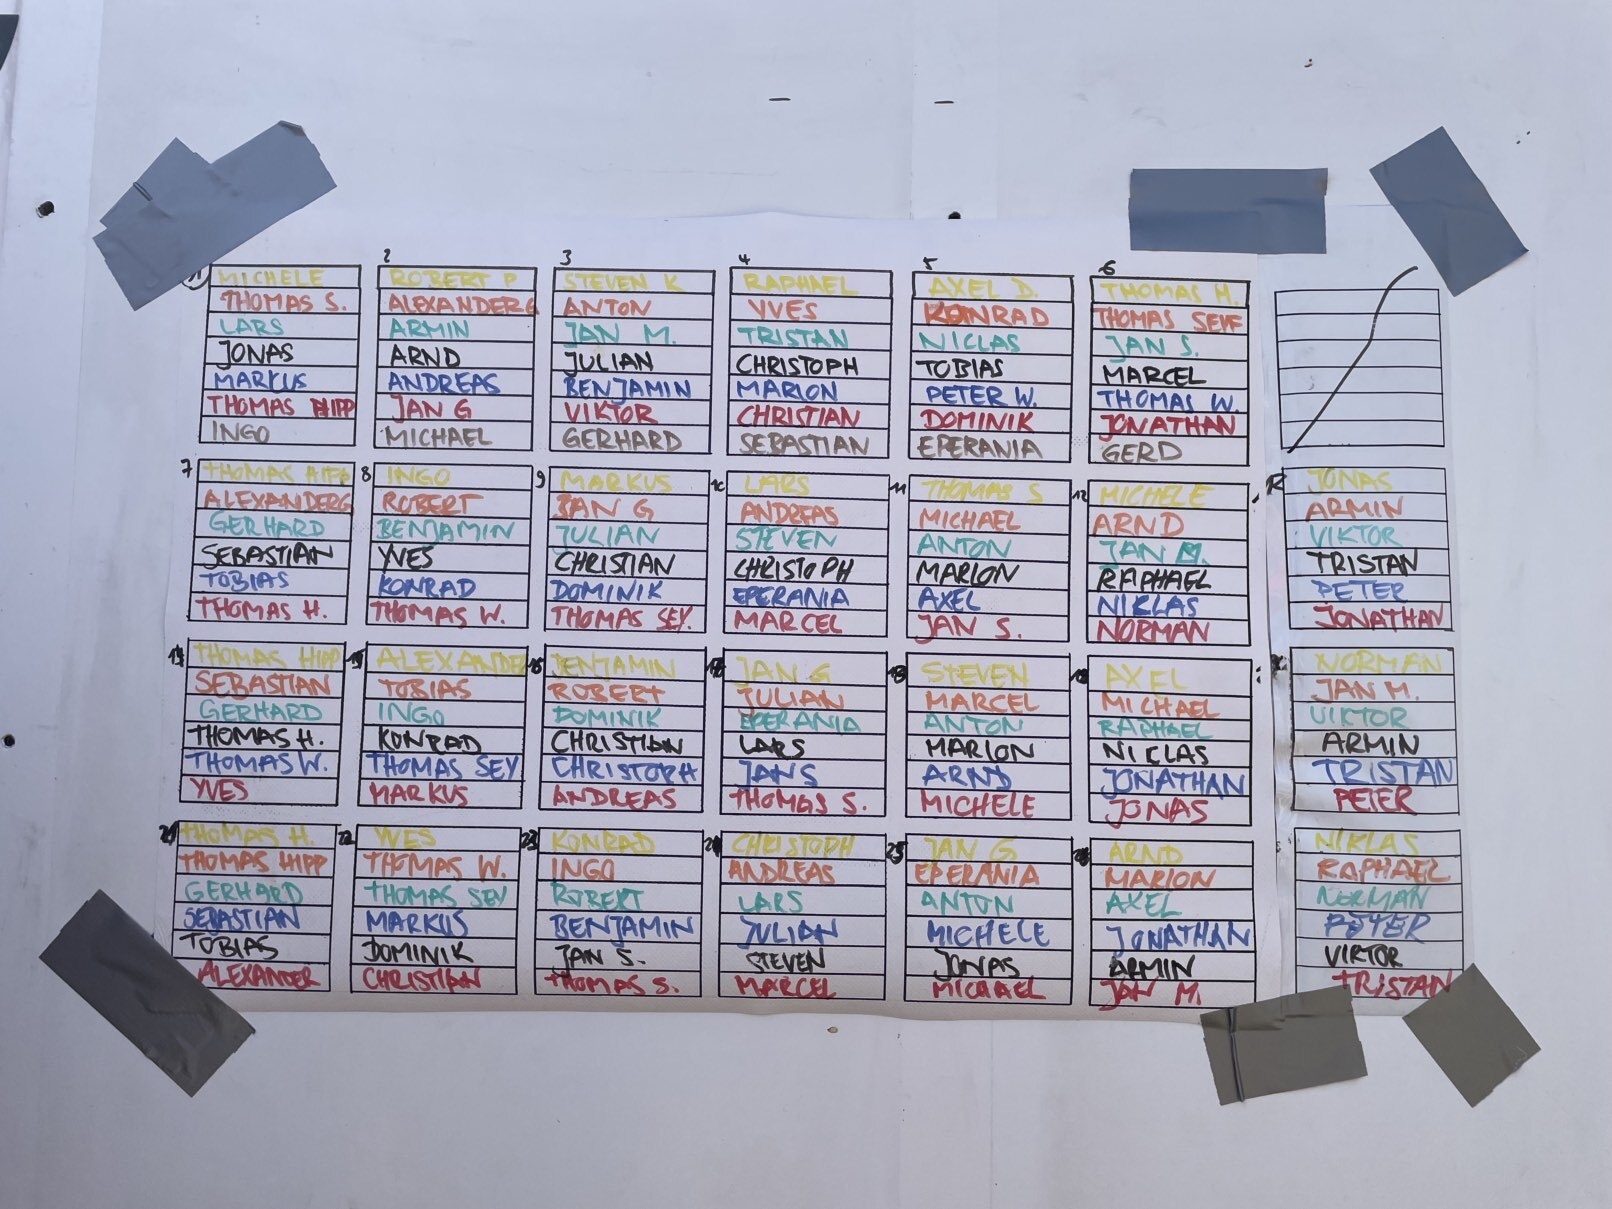 1
MICHELE
THOMAS S.
LARS
JONAS
MARKUS
THOMAS HIPP
INGO
2
ROBERT P
ALEXANDER G
ARMIN
ARND
ANDREAS
JAN G
MICHAEL
3
STEVEN K
ANTON
JAN M.
JULIAN
BENJAMIN
VIKTOR
GERHARD
4
RAPHAEL
YVES
TRISTAN
CHRISTOPH
MARION
CHRISTIAN
SEBASTIAN
5
AXEL D.
KONRAD
NICLAS
TOBIAS
PETER W.
DOMINIK
EPERANIA
6
THOMAS H.
THOMAS SEYF
JAN S.
MARCEL
THOMAS W.
JONATHAN
GERD
7
THOMAS HIPP
ALEXANDER G
GERHARD
SEBASTIAN
TOBIAS
THOMAS H.
8
INGO
ROBERT
BENJAMIN
YVES
KONRAD
THOMAS W.
9
MARKUS
JAN G
JULIAN
CHRISTIAN
DOMINIK
THOMAS SEY.
10
LARS
ANDREAS
STEVEN
CHRISTOPH
EPERANIA
MARCEL
11
THOMAS S
MICHAEL
ANTON
MARION
AXEL
JAN S.
12
MICHELE
ARND
JAN M.
RAPHAEL
NIKLAS
NORMAN
JONAS
ARMIN
VIKTOR
TRISTAN
PETER
JONATHAN
14
THOMAS HIPP
SEBASTIAN
GERHARD
THOMAS H.
THOMAS W.
YVES
15
ALEXANDER
TOBIAS
INGO
KONRAD
THOMAS SEY
MARKUS
16
BENJAMIN
ROBERT
DOMINIK
CHRISTIAN
CHRISTOPH
ANDREAS
JAN G
JULIAN
EPERANIA
LARS
JAN S
THOMAS S.
18
STEVEN
MARCEL
ANTON
MARION
ARND
MICHELE
AXEL
MICHAEL
RAPHAEL
NICLAS
JONATHAN
JONAS
NORMAN
JAN M.
VIKTOR
ARMIN
TRISTAN
PETER
21
THOMAS H.
THOMAS HIPP
GERHARD
SEBASTIAN
TOBIAS
ALEXANDER
22
YVES
THOMAS W.
THOMAS SEY
MARKUS
DOMINIK
CHRISTIAN
23
KONRAD
INGO
ROBERT
BENJAMIN
JAN S.
THOMAS S.
24
CHRISTOPH
ANDREAS
LARS
JULIAN
STEVEN
MARCEL
25
JAN G
EPERANIA
ANTON
MICHELE
JONAS
MICHAEL
26
ARND
MARION
AXEL
JONATHAN
ARMIN
JAN M.
NIKLAS
RAPHAEL
NORMAN
PETER
VIKTOR
TRISTAN